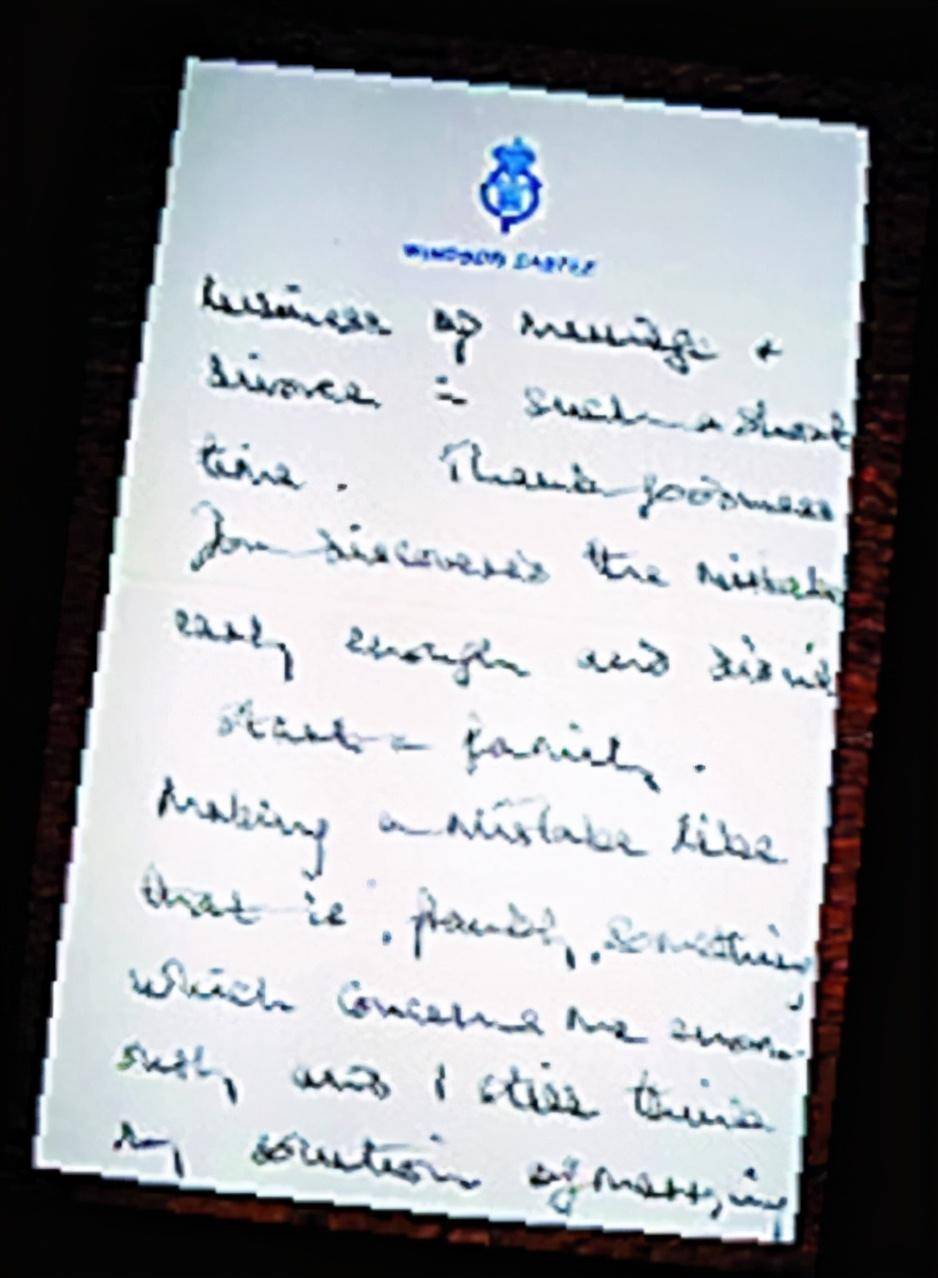 WINDSOR CASTLE
business of marriage &
divorce in such a short
time. Thank goodness
you discovered the mistake
early enough and didn't
start a family.
Making a mistake like
that is, frankly, something
which concerns me enorm-
ously and I still think
my solution of marrying